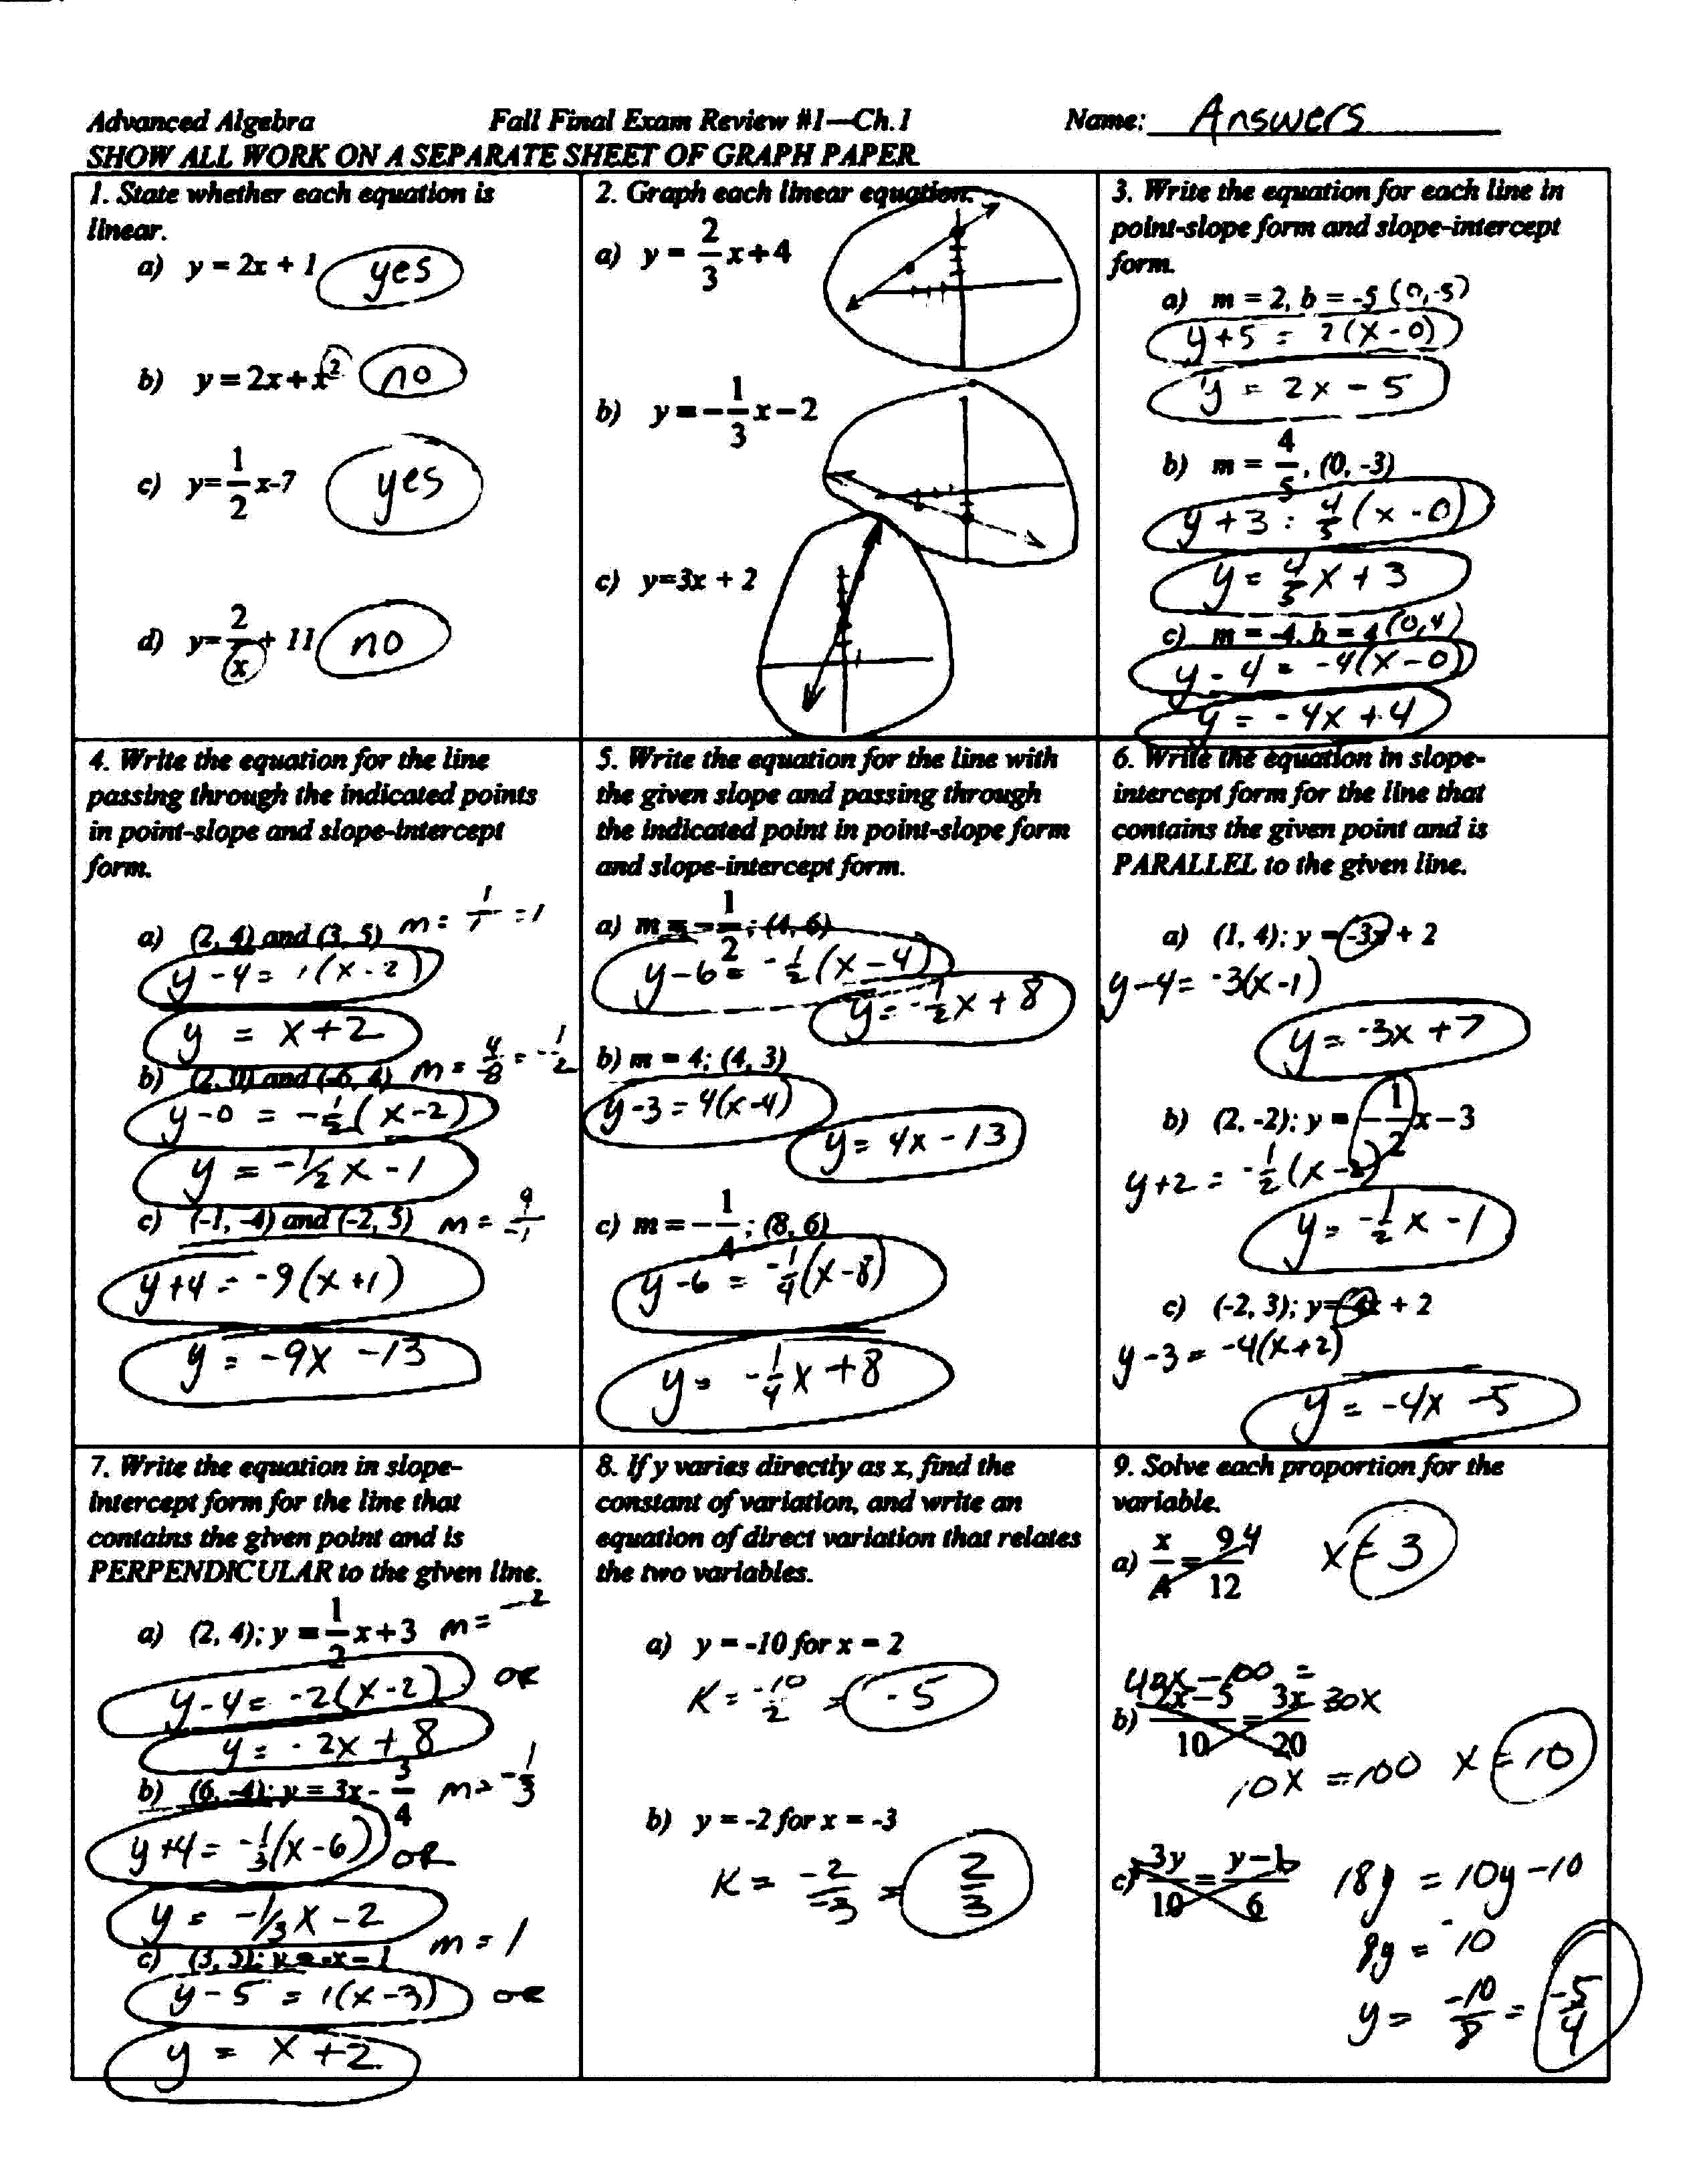 Advanced Algebra Fall Final Exam Review #1—Ch.1 Name: Answers
SHOW ALL WORK ON A SEPARATE SHEET OF GRAPH PAPER
1. State whether each equation is
linear.
a) y = 2x + 1 yes
b) y = 2x + x² no
c) y = 1/2 x - 7 yes
d) y = 2/x + 11 no
2. Graph each linear equation.
a) y = 2/3 x + 4
b) y = -1/3 x - 2
c) y=3x + 2
3. Write the equation for each line in
point-slope form and slope-intercept
form.
a) m = 2, b = -5 (0,-5)
y+5 = 2(x-0)
y = 2x - 5
b) m = 4/5, (0, -3)
y + 3 = 4/5 (x - 0)
y = 4/5 x + 3
c) m = -4, b = 4 (0,4)
y - 4 = -4(x-0)
y = -4x + 4
4. Write the equation for the line
passing through the indicated points
in point-slope and slope-intercept
form.
a) (2, 4) and (3, 5) m = 1/1 = 1
y - 4 = 1(x - 2)
y = x + 2
b) (2, 0) and (-6, 4) m = 4/-8 = -1/2
y - 0 = -1/2 (x - 2)
y = -1/2 x - 1
c) (-1, -4) and (-2, 5) m = 9/-1
y+4 = -9(x+1)
y = -9x - 13
5. Write the equation for the line with
the given slope and passing through
the indicated point in point-slope form
and slope-intercept form.
a) m = -1/2; (4, 6)
y - 6 = -1/2 (x - 4)
y = -1/2 x + 8
b) m = 4; (4, 3)
y - 3 = 4(x-4)
y = 4x - 13
c) m = -1/4; (8, 6)
y - 6 = -1/4 (x - 8)
y = -1/4 x + 8
6. Write the equation in slope-
intercept form for the line that
contains the given point and is
PARALLEL to the given line.
a) (1, 4); y = -3x + 2
y - 4 = -3(x-1)
y = -3x + 7
b) (2, -2); y = -1/2 x - 3
y + 2 = -1/2 (x - 2)
y = -1/2 x - 1
c) (-2, 3); y = -4x + 2
y - 3 = -4(x+2)
y = -4x - 5
7. Write the equation in slope-
intercept form for the line that
contains the given point and is
PERPENDICULAR to the given line.
a) (2, 4); y = 1/2 x + 3 m = -2
y - 4 = -2(x-2) OR
y = -2x + 8
b) (6, -4); y = 3x - 3/4 m = -1/3
y + 4 = -1/3 (x - 6) OR
y = -1/3 x - 2
c) (3, 5); y = -x - 1 m = 1
y - 5 = 1(x-3) OR
y = x + 2
8. If y varies directly as x, find the
constant of variation, and write an
equation of direct variation that relates
the two variables.
a) y = -10 for x = 2
K = -10/2 = -5
b) y = -2 for x = -3
K = -2/-3 = 2/3
9. Solve each proportion for the
variable.
a) x/4 = 9/12 x = 3
40x - 100 =
b) 2x-5/10 = 3x/20 30x
10x = 100 x = 10
c) 3y/10 = y-1/6 18y = 10y - 10
8y = -10
y = -10/8 = -5/4